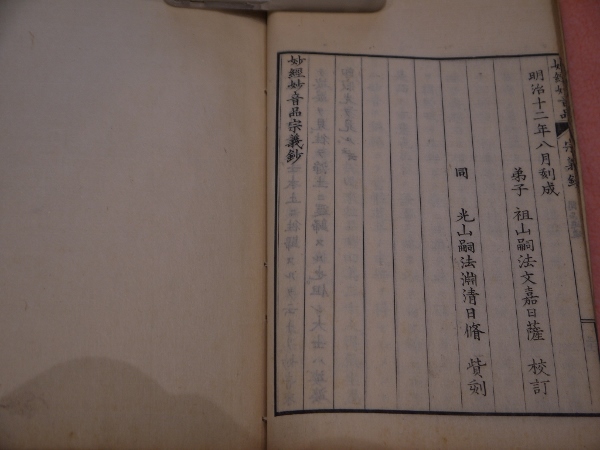 妙經妙音品 宗義鈔
明治十二年八月刻成
弟子 祖山嗣法文嘉日薩 校訂
同 光山嗣法淵清日脩 貲刻
妙經妙音品宗義鈔